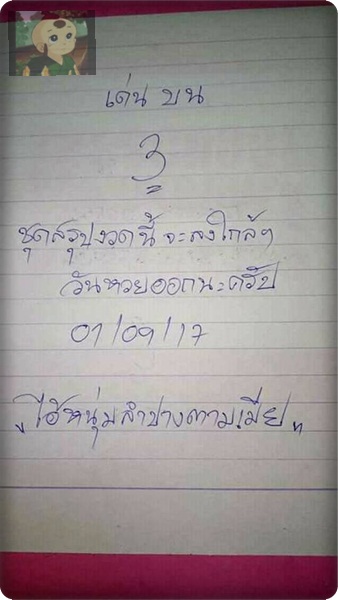 เด่น บน
3
ชุดสรุปงวดนี้ จะลงใกล้ๆ
วันหวยออกนะครับ
01/09/17
"ไอ้หนุ่มลำปางตามเมีย"